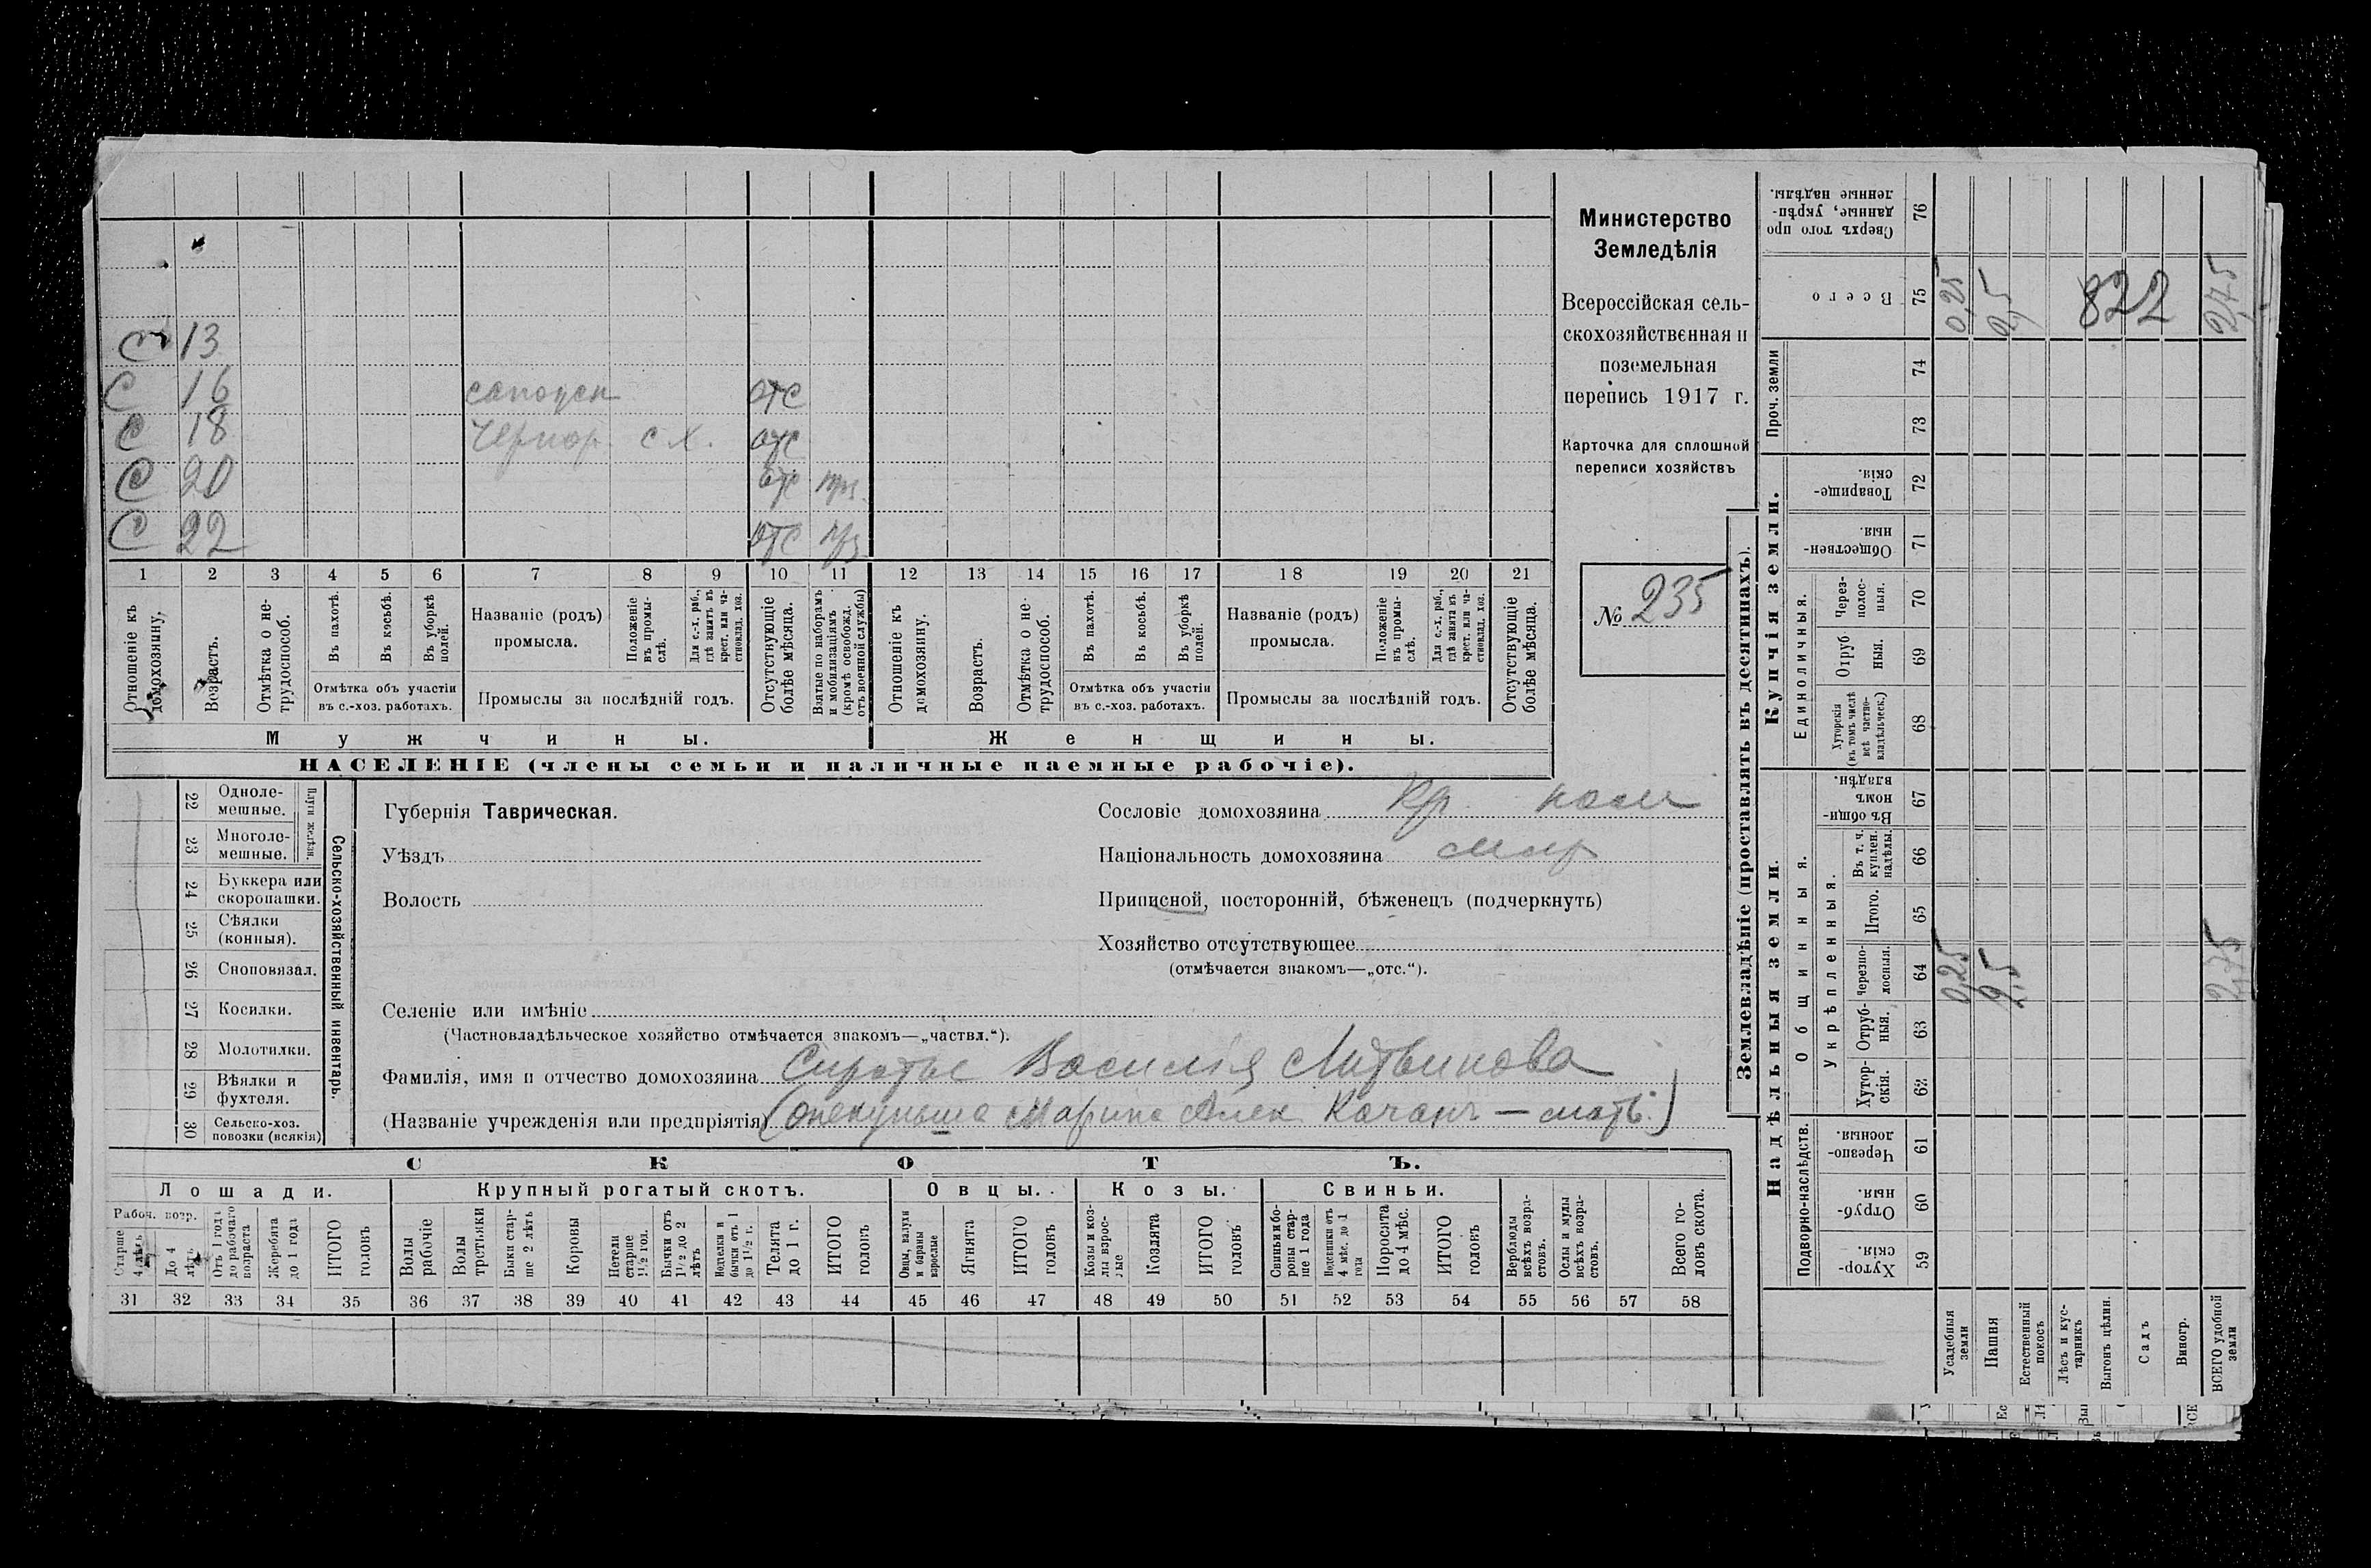 С 13
С 16 сапожн отс
С 18 Чернор. с х. отс
С 20 отс
С 22 отс
1 2 3 4 5 6 7 8 9 10 11 12 13 14 15 16 17 18 19 20 21
Отношеніе къ домохозяину.
Возрастъ.
Отмѣтка о нетрудоспособ.
Въ пахотѣ.
Въ косьбѣ.
Въ уборкѣ полей.
Отмѣтка объ участіи
въ с.-хоз. работахъ.
Названіе (родъ)
промысла.
Положеніе въ промыслѣ.
Для с.-х. раб., гдѣ занятъ въ крест. или частновлад. хоз.
Промыслы за послѣдній годъ.
Отсутствующіе болѣе мѣсяца.
Взятые по наборамъ и мобилизаціямъ (кромѣ освобожд. отъ военной службы)
Отношеніе къ домохозяину.
Возрастъ.
Отмѣтка о нетрудоспособ.
Въ пахотѣ.
Въ косьбѣ.
Въ уборкѣ полей.
Отмѣтка объ участіи
въ с.-хоз. работахъ.
Названіе (родъ)
промысла.
Положеніе въ промыслѣ.
Для с.-х. раб., гдѣ занята въ крест. или частновлад. хоз.
Промыслы за послѣдній годъ.
Отсутствующіе болѣе мѣсяца.
Мужчины.
Женщины.
НАСЕЛЕНІЕ (члены семьи и наличные наемные рабочіе).
Министерство
Земледѣлія
Всероссійская сель-
скохозяйственная и
поземельная
перепись 1917 г.
Карточка для сплошной
переписи хозяйствъ
№ 235
22 Одноле-
мешные.
23 Многоле-
мешные.
Плуги желѣзн.
24 Буккера или
скоропашки.
25 Сѣялки
(конныя).
26 Сноповязал.
27 Косилки.
28 Молотилки.
29 Вѣялки и
фухтеля.
30 Сельско-хоз.
повозки (всякія)
Сельско-хозяйственный инвентарь.
Губернія Таврическая.
Уѣздъ
Волость
Сословіе домохозяина Кр.
Національность домохозяина
Приписной, посторонній, бѣженецъ (подчеркнуть)
Хозяйство отсутствующее
(отмѣчается знакомъ—„отс.“).
Селеніе или имѣніе
(Частновладѣльческое хозяйство отмѣчается знакомъ—„частвл.“).
Фамилія, имя и отчество домохозяина Сироты Василія Литвинова
(Названіе учрежденія или предпріятія) (опекунша Марина Алек Качанъ — мать.)
СКОТЪ.
Лошади.
Крупный рогатый скотъ.
Овцы.
Козы.
Свиньи.
Рабоч. возр.
Старше 4 лѣтъ
До 4 лѣтъ
Отъ 1 года до рабочаго возраста
Жеребята до 1 года
ИТОГО головъ
Волы рабочіе
Волы третьяки
Быки старше 2 лѣтъ
Коровы
Нетели старше 1½ год.
Бычки отъ 1½ до 2 лѣтъ
бычки отъ 1 до 1½ г.
Телята до 1 г.
ИТОГО головъ
Овцы, валухи и бараны взрослые
Ягнята
ИТОГО головъ
Козы и козлы взрослые
Козлята
ИТОГО головъ
Свиньи и боровы старше 1 года
Подсвинки отъ 4 мѣс. до 1 года
Поросята до 4 мѣс.
ИТОГО головъ
Верблюды всѣхъ возрастовъ.
Ослы и мулы всѣхъ возрастовъ.
Всего головъ скота.
31 32 33 34 35 36 37 38 39 40 41 42 43 44 45 46 47 48 49 50 51 52 53 54 55 56 57 58
Землевладѣніе (проставлять въ десятинахъ).
Сверхъ того проданные, укрѣпленные надѣлы. 76
Всего 75 0,25 2,5 822 2,75
Проч. земли
74
73
Купчія земли.
Товарищескія. 72
Общественныя. 71
Единоличныя.
Черезполосныя. 70
Отрубныя. 69
Хуторскія (въ томъ числѣ всѣ частновладѣльческ.) 68
Надѣльныя земли.
Общинныя.
Въ общинномъ владѣн. 67
Укрѣпленныя.
Въ т. ч. куплен. надѣлы. 66
Итого. 65
Черезполосныя. 64 0,25 2,5 2,75
Отрубныя. 63
Хуторскія. 62
Подворно-наслѣдств.
Черезполосныя. 61
Отрубныя. 60
Хуторскія. 59
Усадебныя земли
Пашня
Естественный покосъ
Лѣсъ и кустарникъ
Выгонъ цѣлин.
Садъ
Виногр.
ВСЕГО удобной земли